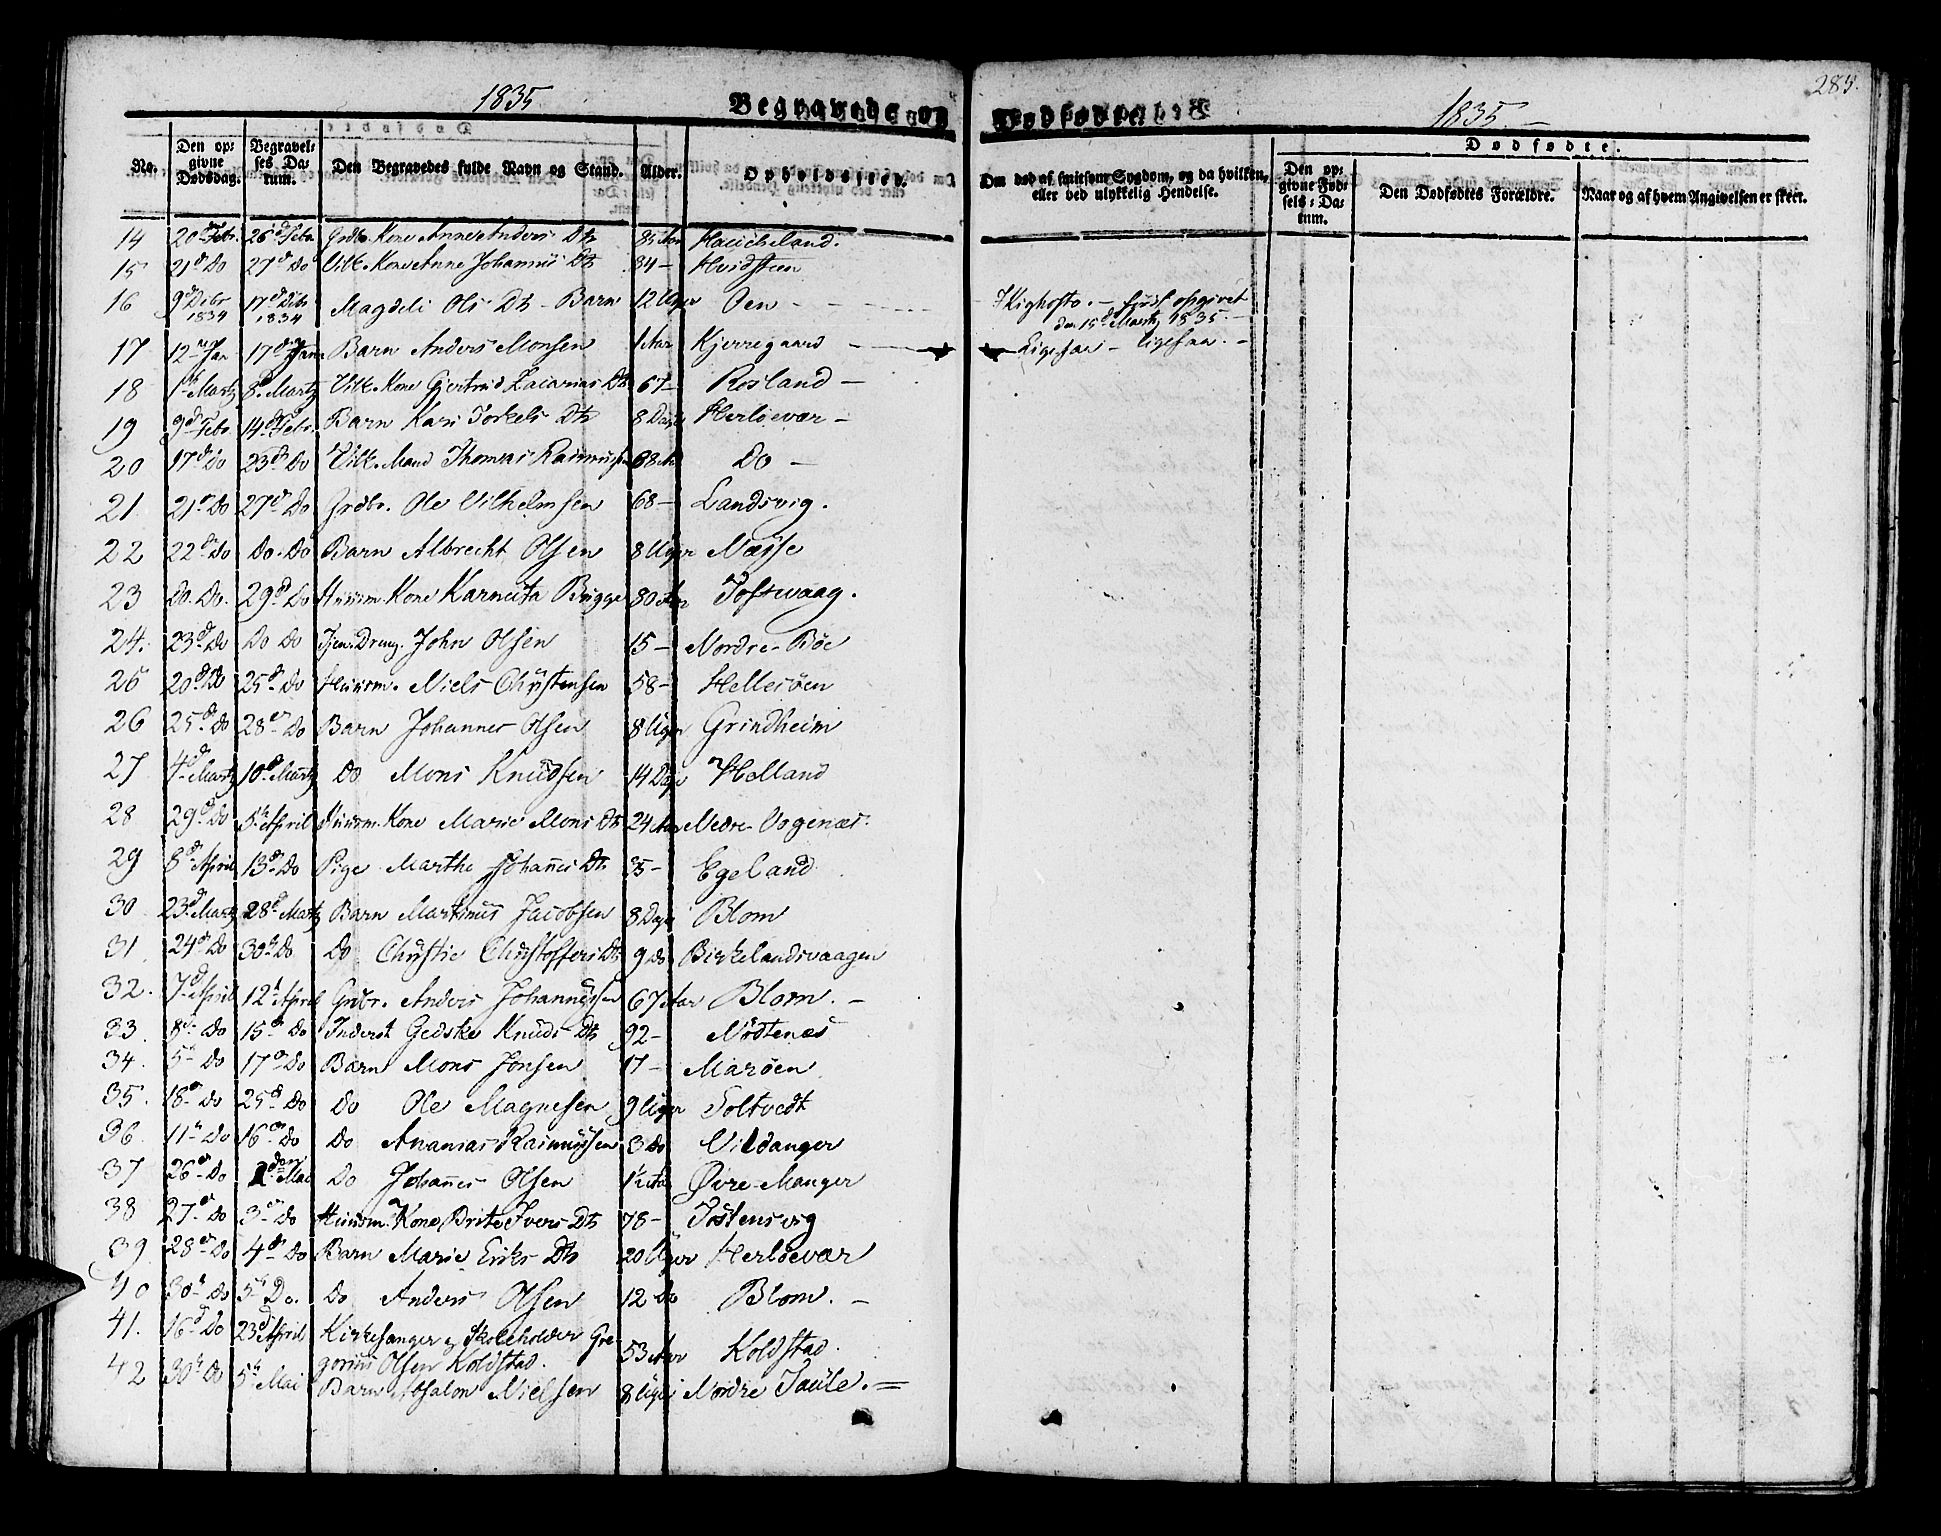 1835 Begravede og Dødfødte. 1835. 285.
Dødfødte.
No. Den opgivne Dødsdag. Begravelses Datum. Den Begravedes fulde Navn og Stand. Alder. Opholdssted. Om død af smitsom Sygdom, og da hvilken, eller ved ulykkelig Hendelse. Den opgivne Fødsels-Datum. Den Dødfødtes Forældre. Naar og af hvem Angivelsen er skeet.
14 20d Febr. 26d Febr. Grdbr. Kone Anne Anders Dtr 85 Aar
15 21d Do 27d Do Vilk. Kone Anne Johannis Dtr 34 - Hvidsteen
16 9d Debr 1834 17d Debr 1834 Magdeli Ols Dtr - Barn 12 Uger Oen - Kighoste. - først opgivet den 15d Martz 1835. -
17 12 Jan 17d Jan Barn Anders Monsen 1 Aar Kjerregaard - Ligesaa - ligesaa. -
18 1 Martz 8d Martz Vilk. Kone Gjertrud Zacarias Dtr 67 - Rosland -
19 9d Febr. 14d Febr. Barn Kari Torkels Dtr 8 Dage Herløevær -
20 17d Do 23d Do Vilk. Mand Thomas Rasmussen 68 Aar Do -
21 21 Do 27d Do Grdbr. Ole Vilhelmsen 68 - Landsvig.
22 22d Do Do. Do Barn Albrecht Olsen 8 Uger Næsse
23 Do. Do. 29d Do Huusm. Kone Karneita Brigge 80 Aar Toftevaag.
24. 23d Do Do Do Tjen. Dreng. John Olsen 15 - Nordre-Böe
25 20d Do 25d Do Huusm. Niels Christensen 58 - Hellesöen
26 25d Do 28 Do Barn Johannes Olsen 8 Uger Grindheim
27 4d Martz 10d Martz Do Mons Knudsen 14 Dage Helland
28 29d Do 5 April Huusm. Kone Marie Mons Dtr 24 Aar Nedre-Vogenæs.
29 8d April 13d Do Pige Marthe Johannes Dtr 35 - Egeland
30 23d Martz 28d Martz Barn Martinus Jacobsen 8 Dage Blom
31. 24d Do 30 Do Do Christie Christoffers Dtr 9 Do Birkelandsvaagen
32. 7d April 12 April Grdbr. Anders Johannessen 67 Aar Blom. -
33. 8d Do 15 Do Inderst Gedske Knuds Dtr 92 - Nödtenæs
34. 5 Do 17d Do Barn Mons Jonsen 17 - Maröen
35. 18 Do 25d Do Do Ole Magnesen 9 Uger Toltvedt
36. 11 Do 16 Do Do Ananias Rasmussen 3 Do Vildanger
37 26 Do 1den Mai Do Johannes Olsen 1½ Aar Øvre-Manger
38 27 Do 3 Do Huusm. Kone Brite Ivers Dtr 78 - Tostensvig
39. 28 Do 4d Do Barn Marie Eriks Dtr 20 Uger Herløevær
40 30 Do 5 Do. Do Anders Olsen 12 Do Blom. -
41. 16d Do 23d April Kirkesanger og Skoleholder Gregorius Olsen Koldstad. 53 Aar Koldstad.
42 30 Do 5 Mai Barn Absalon Nielsen 8 Uger Nordre Taule.